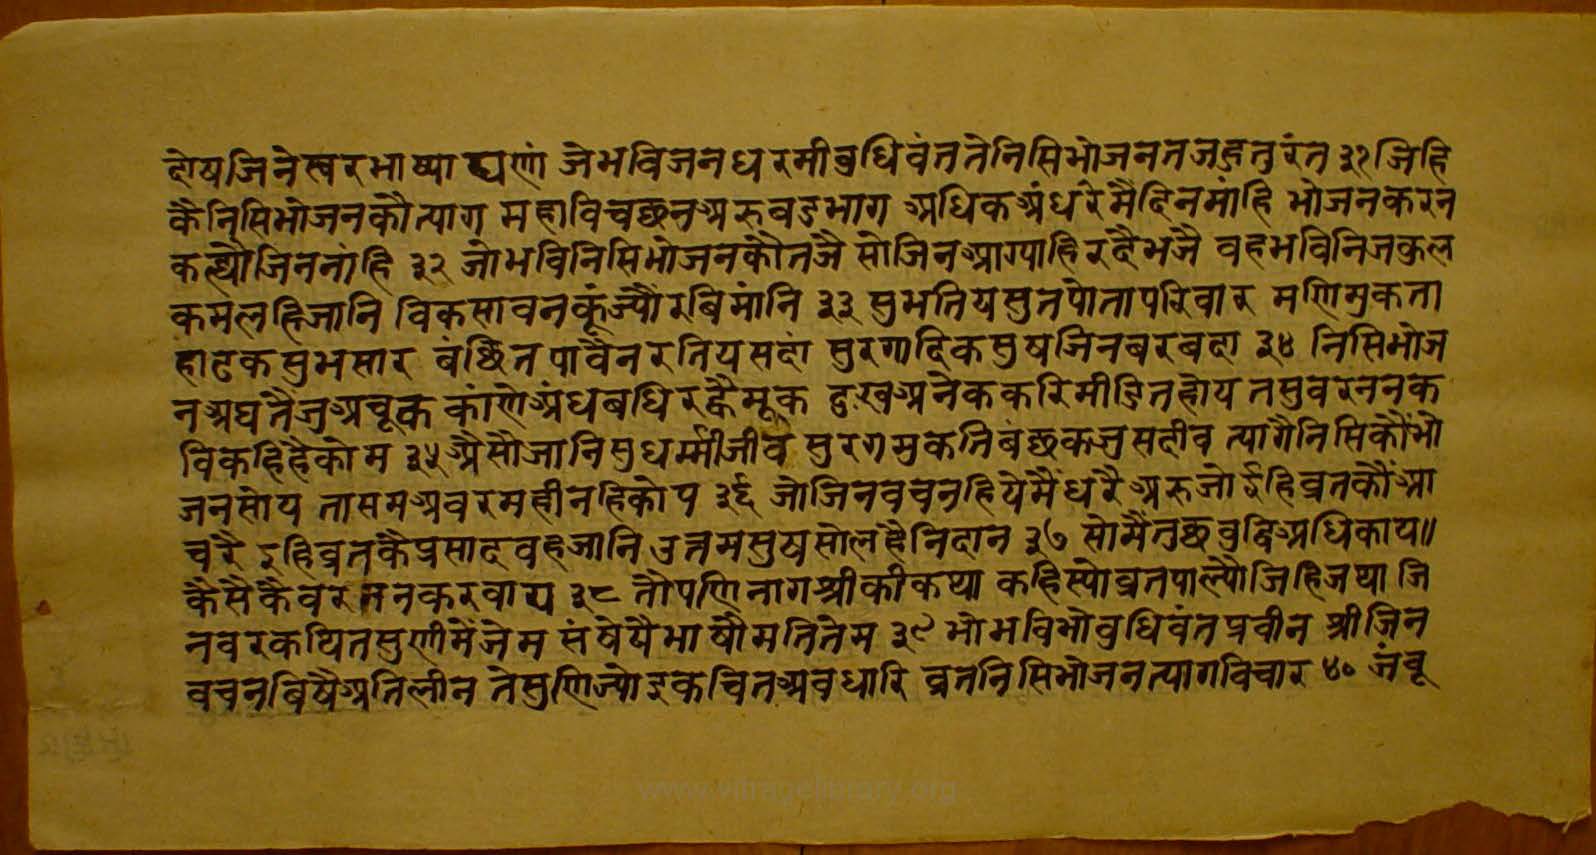 होयजिनेस्वरभाष्याघणां जेभविजनधरमीबुधिवंत तेनिसिभोजनतजहुतुरंत ३१ जिहि
कैनिसिभोजनकौत्याग महाविचछनअरुबडभाग अधिकअंधरेमैदिनमांहि भोजनकरन
कल्यौजिननांहि ३२ जोभविनिसिभोजनकौतजै सोजिनआग्याहिरदैभजै वहभविनिजकुल
कमलहिजानि विकसावनकूंज्यौरबिमांनि ३३ सुभतियसुतपोतापरिवार मणिमुकता
हाटकसुभसार बंछितपावैनरतियसदां सुरगादिकसुषजिनबरबदा ३४ निसिभोज
नअघतैजुअचूक कांणेअंधबधिरह्वैमूक दुःखअनेककरिमींडितहोय तसुवरननक
विकहिहेकोम ३५ अैसौजानिसुधर्म्मीजीव सुरगमुकतिबंछकजुसदीव त्यागैनिसिकौंभो
जनसोय तासमअवरमहीनहिकोय ३६ जोजिनवचनहियेमैंधरै अरुजोईहिव्रतकौंआ
चरै इहिव्रतकैप्रसादवहजानि उतमसुषसोलहैनिदान ३७ सोमैंतुछबुद्धिअधिकाय॥
कैसैकैवरननकरवाय ३८ तौपणिनागश्रीकीकथा कहिस्योव्रतपाल्यौजिहिजथा जि
नवरकथितसुणीमेंजेम संषेयैभाषौमतितेम ३९ भोभविभोबुधिवंतप्रवीन श्रीजिन
वचनविषैअतिलीन तेसुणिज्योइकचितअवधारि व्रतनिसिभोजनत्यागविचार ४० जंबू
www.vitragelibrary.org